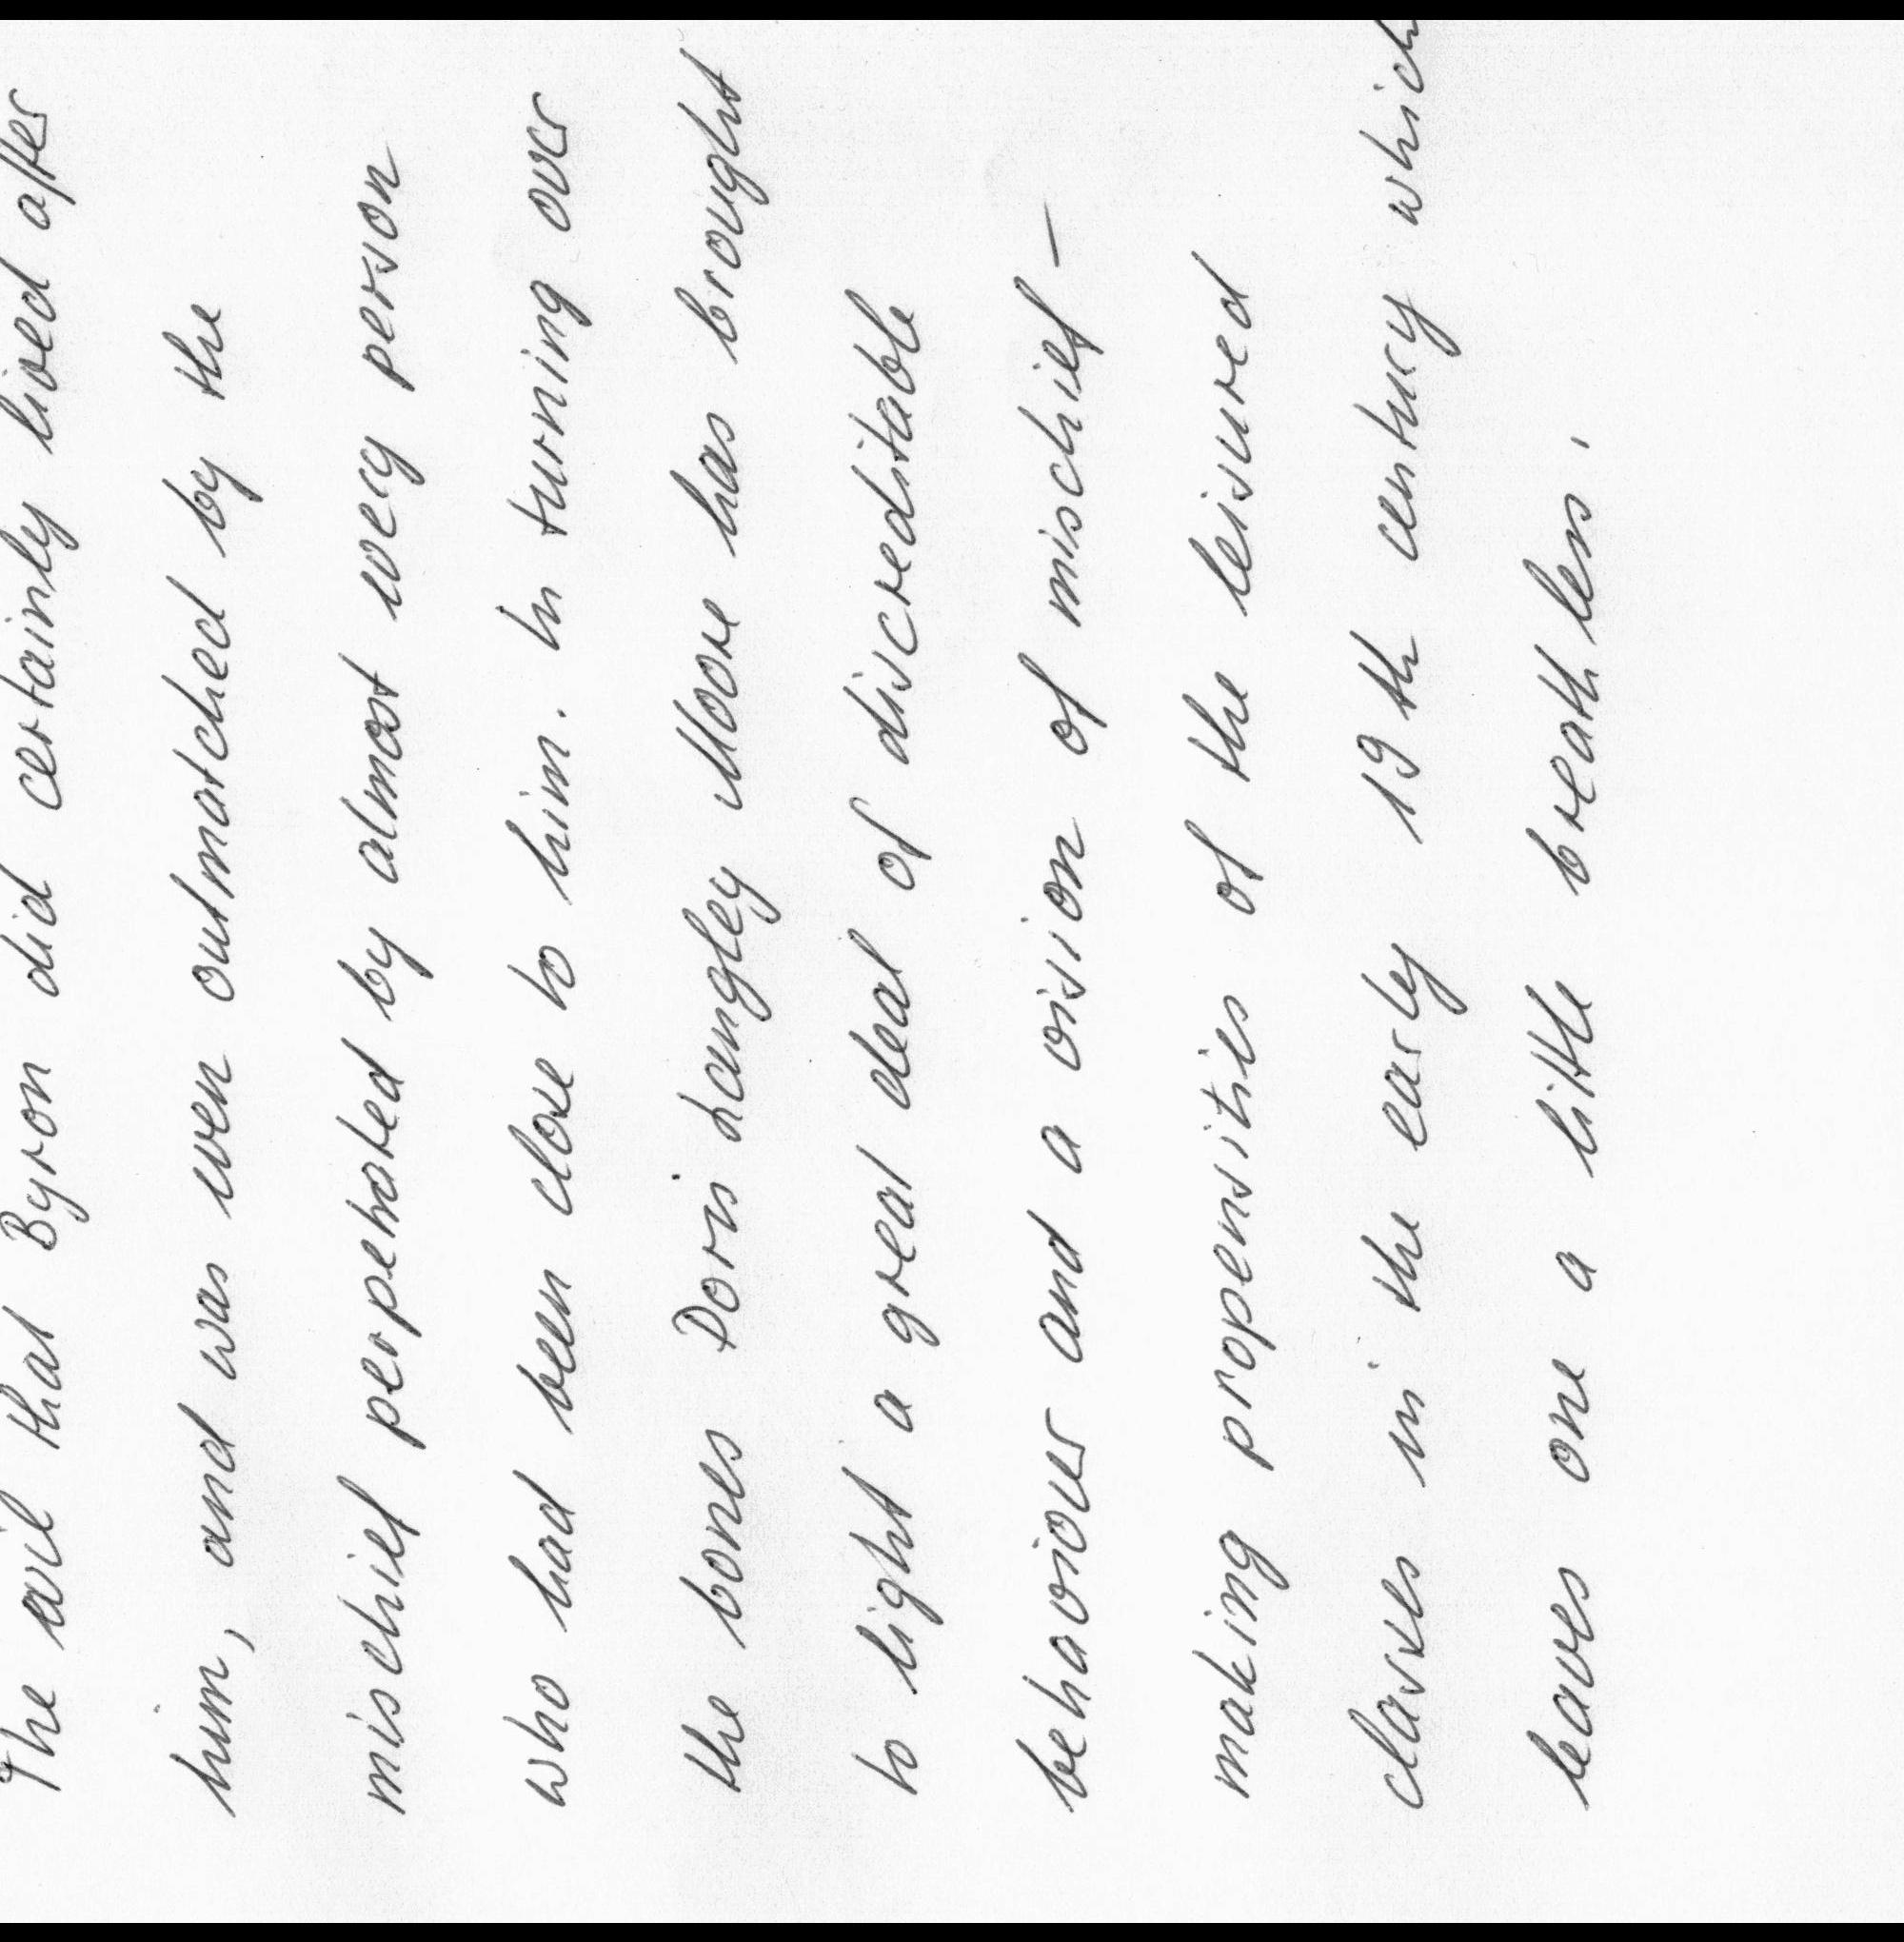 The evil that Byron did certainly lived after
him, and was even outmatched by the
mischief perpetrated by almost every person
who had been close to him. In turning over
the bones Doris Langley Moore has brought
to light a great deal of discreditable
behaviour and a vision of mischief-
making propensities of the leisured
classes in the early 19th century which
leaves one a little breathless.